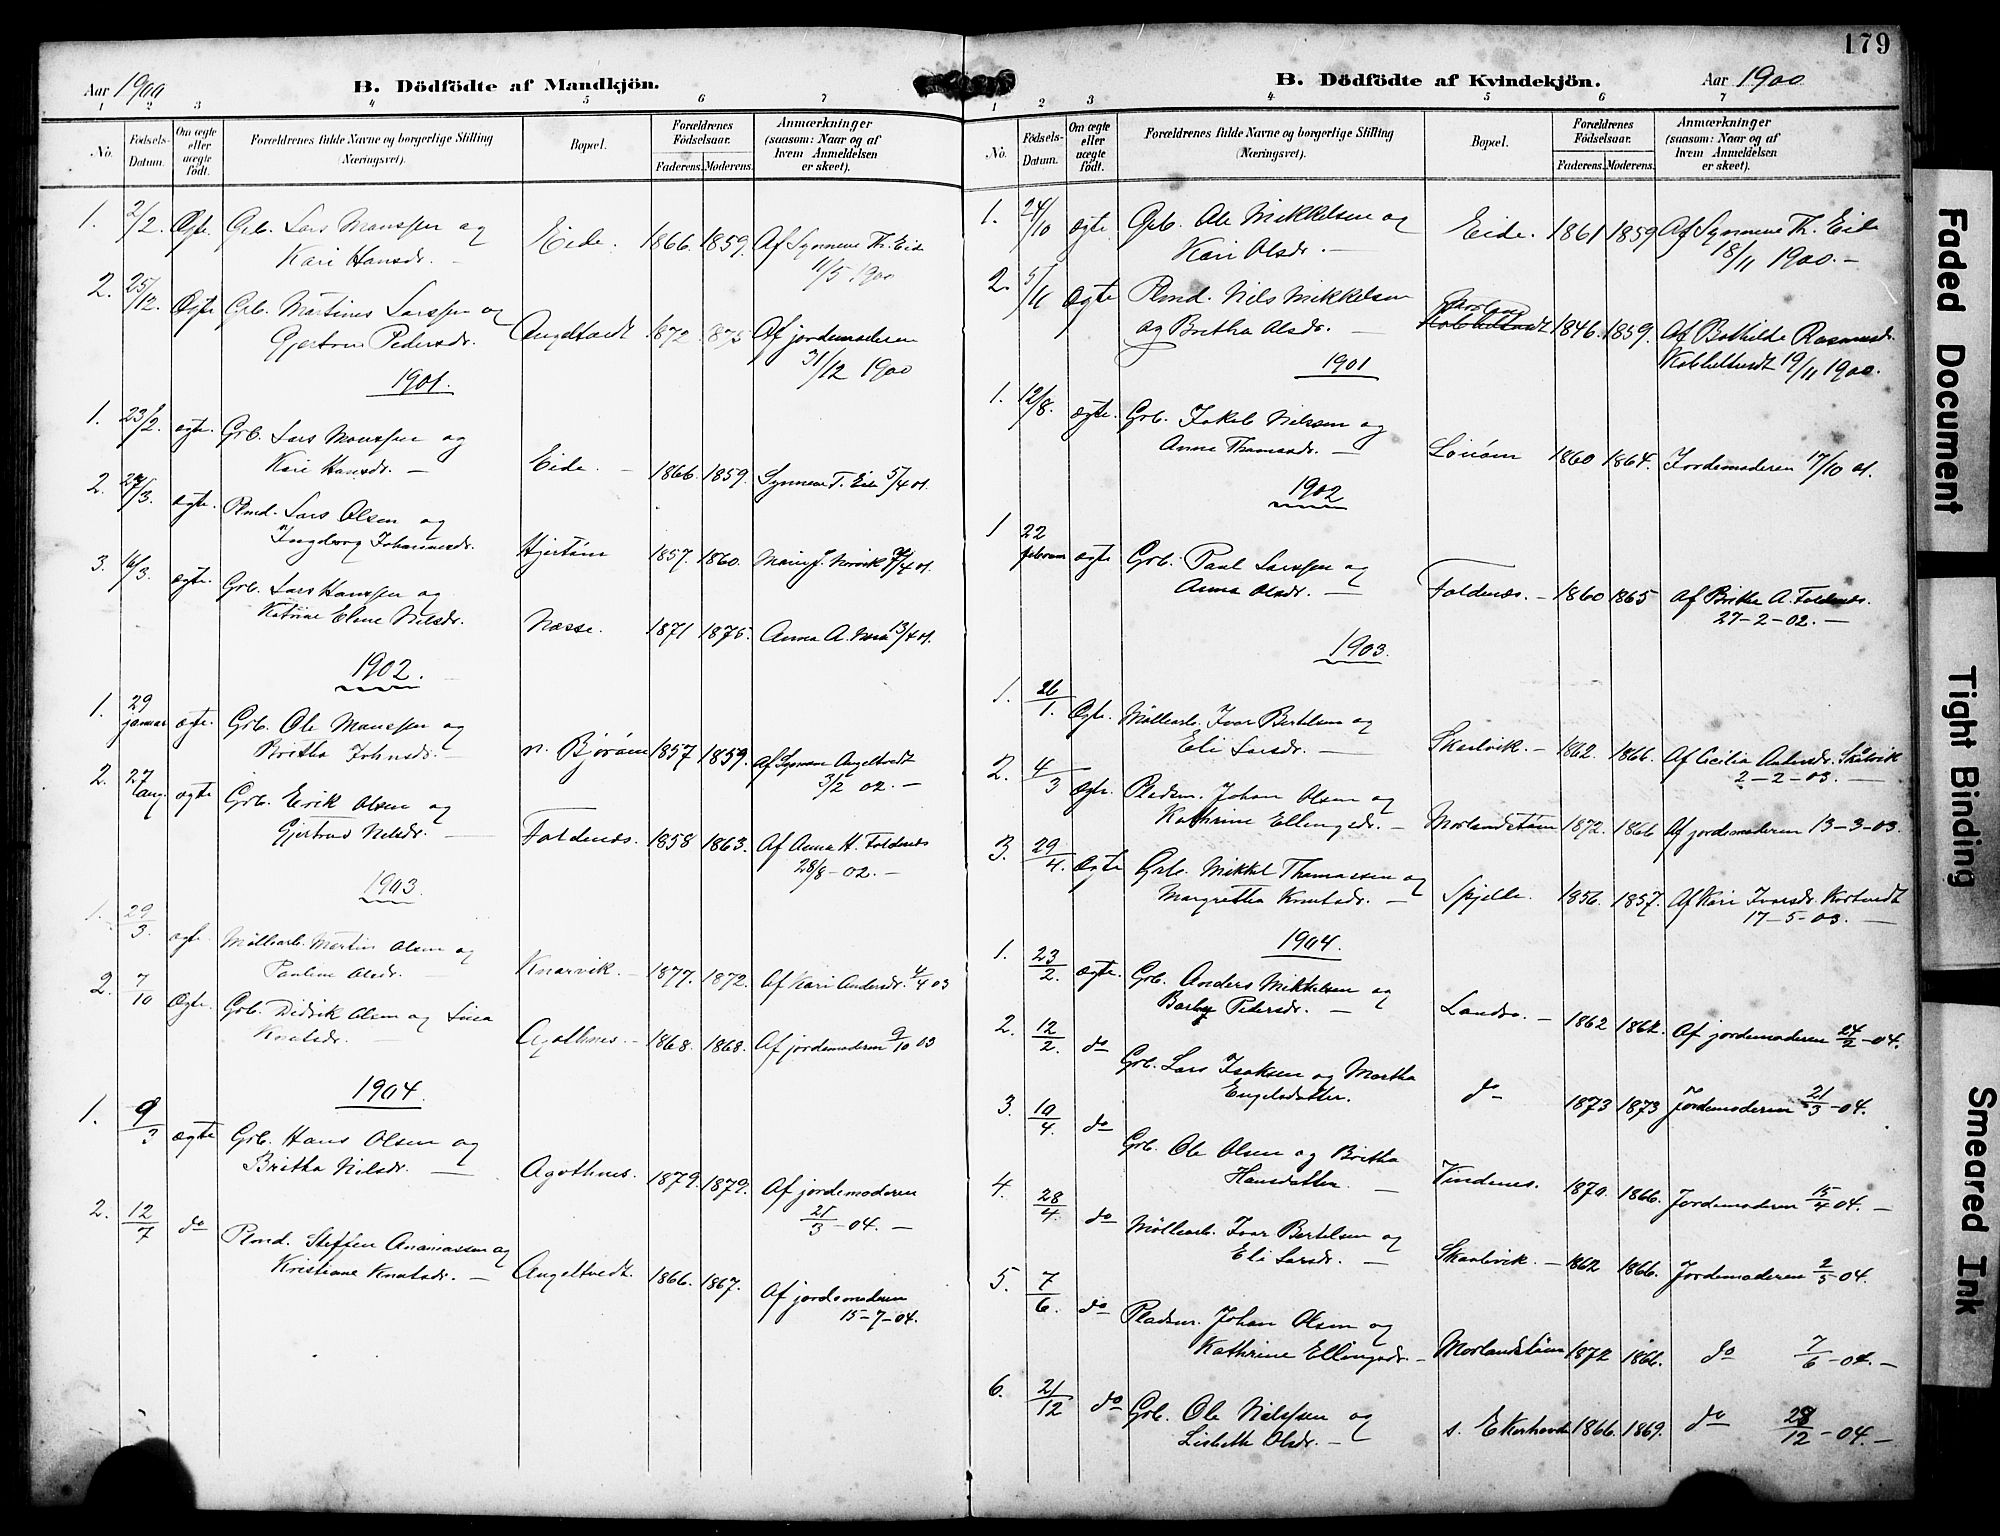 179
Aar 1900
B. Dödfödte af Mandkjön.
1 2 3 4 5 6 7
No.
Födsels-Datum.
Om ægte eller uægte födt.
Forældrenes fulde Navne og borgerlige Stilling (Næringsvei).
Bopæl.
Forældrenes Födselsaar.
Faderens. Moderens.
Anmærkninger (saasom: Naar og af hvem Anmeldelsen er skeet).
1. 2/2. Ægte. Grb. Lars Monssen og
Kari Hansdr. Eide. 1866. 1859. Af Synneve Th. Eide
11/5 1900
2. 25/12. Ægte Grb. Martines Larssen og
Gjertrue Pedersdr. Angeltvedt 1872. 1875 Af jordemoderen
31/12 1900
1901.
1. 23/2. ægte. Grb. Lars Monssen og
Kari Hansdr. – Eide. – 1866. 1859. Synneve T. Eide 5/4 01.
2. /3. ægte. Plmd. Lars Olsen og
Ingeborg Johannesdr. 1857. 1860. /4 01.
3. 16/3. ægte. Grb. Lars Hanssen og
Katrine Elene Nilsdr. Næsse. 1871 1875. Anna A. 13/4 01.
1902.
1. 29 januar ægte. Grb. Ole Monssen og
Britha Johnsdr. – n. Bjorøen 1857 1859. Af Synneve Angeltvedt
3/2 02. –
2. 27 aug. ægte Grb. Eirik Olsen og
Gjertrud Nilsdr. – Foldenes. 1858 1863. Af Anna H. Foldenes
28/8 – 02. –
1903.
1. 29/3. ægte. Møllearb. Martin Olsen og
Pauline Olsdr. – Knarvik. – 1877. 1872. Af Kari Andersdr. 4/4 03
2. 7/10 Ægte. Grb. Didrik Olsen og Lina
Knutsdr. – Agothnes. – 1868. 1868. Af jordemoderen 9/10 03
1904.
1. 9/3 ægte Grb. Hans Olsen og
Britha Nilsdr. – Agothnes. 1879. 1879. Af jordemoderen
21/3 – 04. –
2. 12/7 do Plmd. Steffen Ananiassen og
Kristiane Knutsdr. – Angeltvedt. 1866. 1867. Af jordemoderen
15–7–04.
B. Dödfödte af Kvindekjön.
Aar 1900
1 2 3 4 5 6 7
No.
Födsels-Datum.
Om ægte eller uægte födt.
Forældrenes fulde Navne og borgerlige Stilling (Næringsvei).
Bopæl.
Forældrenes Födselsaar.
Faderens. Moderens.
Anmærkninger (saasom: Naar og af hvem Anmeldelsen er skeet).
1. 24/10 ægte Grb. Ole Mikkelsen og
Kari Olsdr. – Eide. 1861 1859 Af Synneve Th. Eide
18/11 1900. –
2. 5/11 Ægte Plmd. Nils Mikkelsen
og Britha Olsdr. – 1846. 1859. Af Bothilde Rasmusdr.
Kobbeltvedt 19/11 1900.
1901
1. 12/8. ægte. Grb. Jakob Nilssen og
Anna Thomasdr. – 1860 1864. Jordemoderen 17/10 01.
1902
1 22 februar ægte Grb. Paul Larssen og
Anna Olsdr. – Foldenæs. – 1860 1865 Af Britha A. Foldenæs.
27–2–02. –
1903.
1. 26/1. Ægte. Møllearb. Ivar Bertelsen og
Eli Larsdr. – Skaalvik. – 1862. 1866. Af Cecilia Andersdr. Skålvik
2–2–03. –
2. 4/3 Ægte. Pladsm. Johan Olsen og
Kathrine Ellingsdr. – Morlandstøen 1872. 1866 Af jordemoderen 13–3–03.
3. 29/4. Ægte Grb. Mikkel Thomassen og
Margretha Knutsdr. – Spjelle. 1856. 1857. Af Kari Ivarsdr. Kortvedt
17–5–03. –
1904.
1. 23/2. ægte. Grb. Anders Mikkelsen og
Barby Pedersdr. – Landro. – 1862 1862. Af jordemoderen 24/2 – 04.
2. 12/2. do Grb. Lars Isaksen og Martha
Engelsdatter. do 1873 1873 Jordemoderen 21/3 – 04.
3. 10/4. do Grb. Ole Olsen og Britha
Hansdatter. – Vindenes. 1870. 1866. Jordemoderen 15/4 04. –
4. 28/4. do Møllearb. Ivar Bertelsen og
Eli Larsdr. – Skaalvik. – 1862 1866. Jordemoderen 2/5 – 04.
5. 7/6. do Pladsm. Johan Olsen og
Kathrine Ellingsdr. – Morlandstøen 1872 1866. do 7/6 – 04. –
6. 21/12 do Grb. Ole Nilssen og
Lisbeth Olsdr. – s. Ekerhovde 1866. 1869. do 28/12 – 04. –
Faded Document
Tight Binding
Smeared Ink